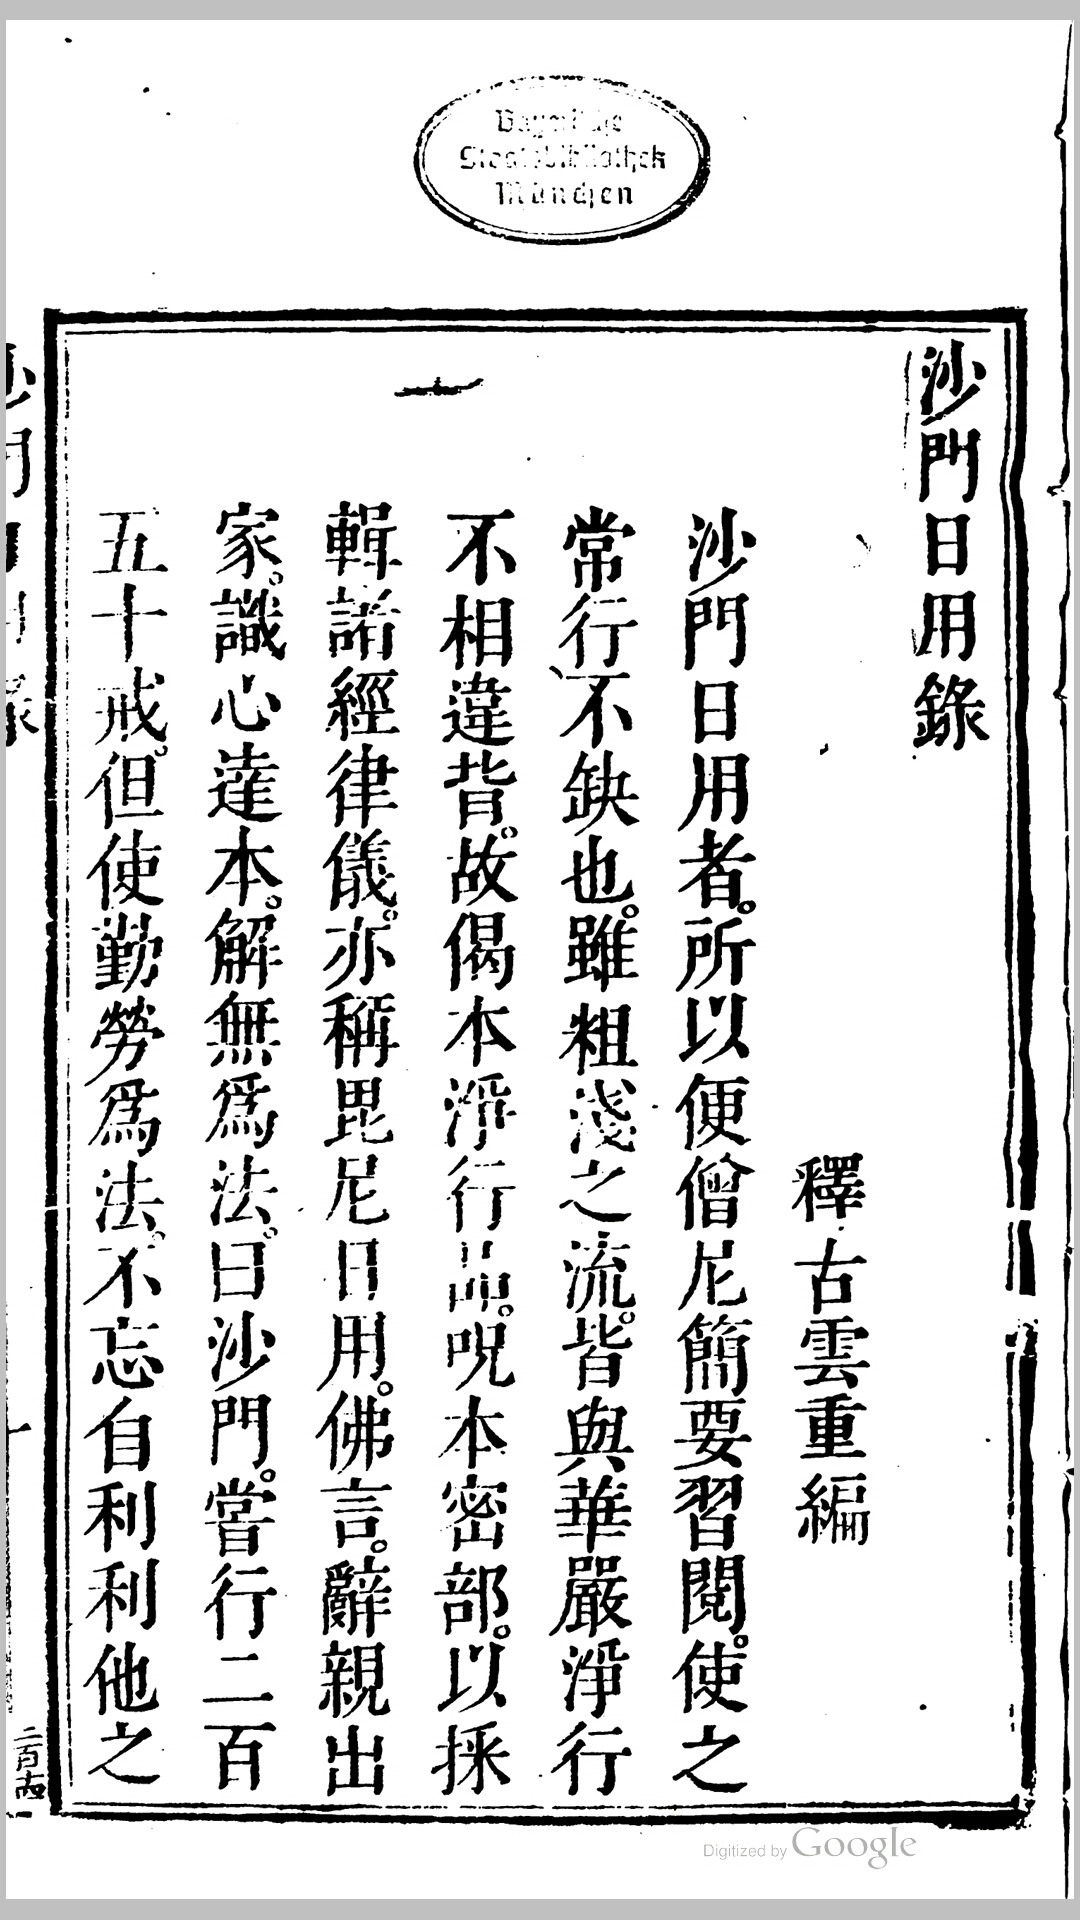 Bayerische
Staatsbibliothek
München
沙門日用錄
釋古雲重編
沙門日用者。所以便僧尼簡要習閱。使之
常行不缺也。雖粗淺之流。皆與華嚴淨行
不相違背。故偈本淨行品。呪本密部。以採
輯諸經律儀。亦稱毘尼日用。佛言。辭親出
家。識心達本。解無為法。曰沙門。嘗行二百
五十戒。但使勤勞為法。不忘自利利他之
沙門日用錄
二百十四
Digitized by Google